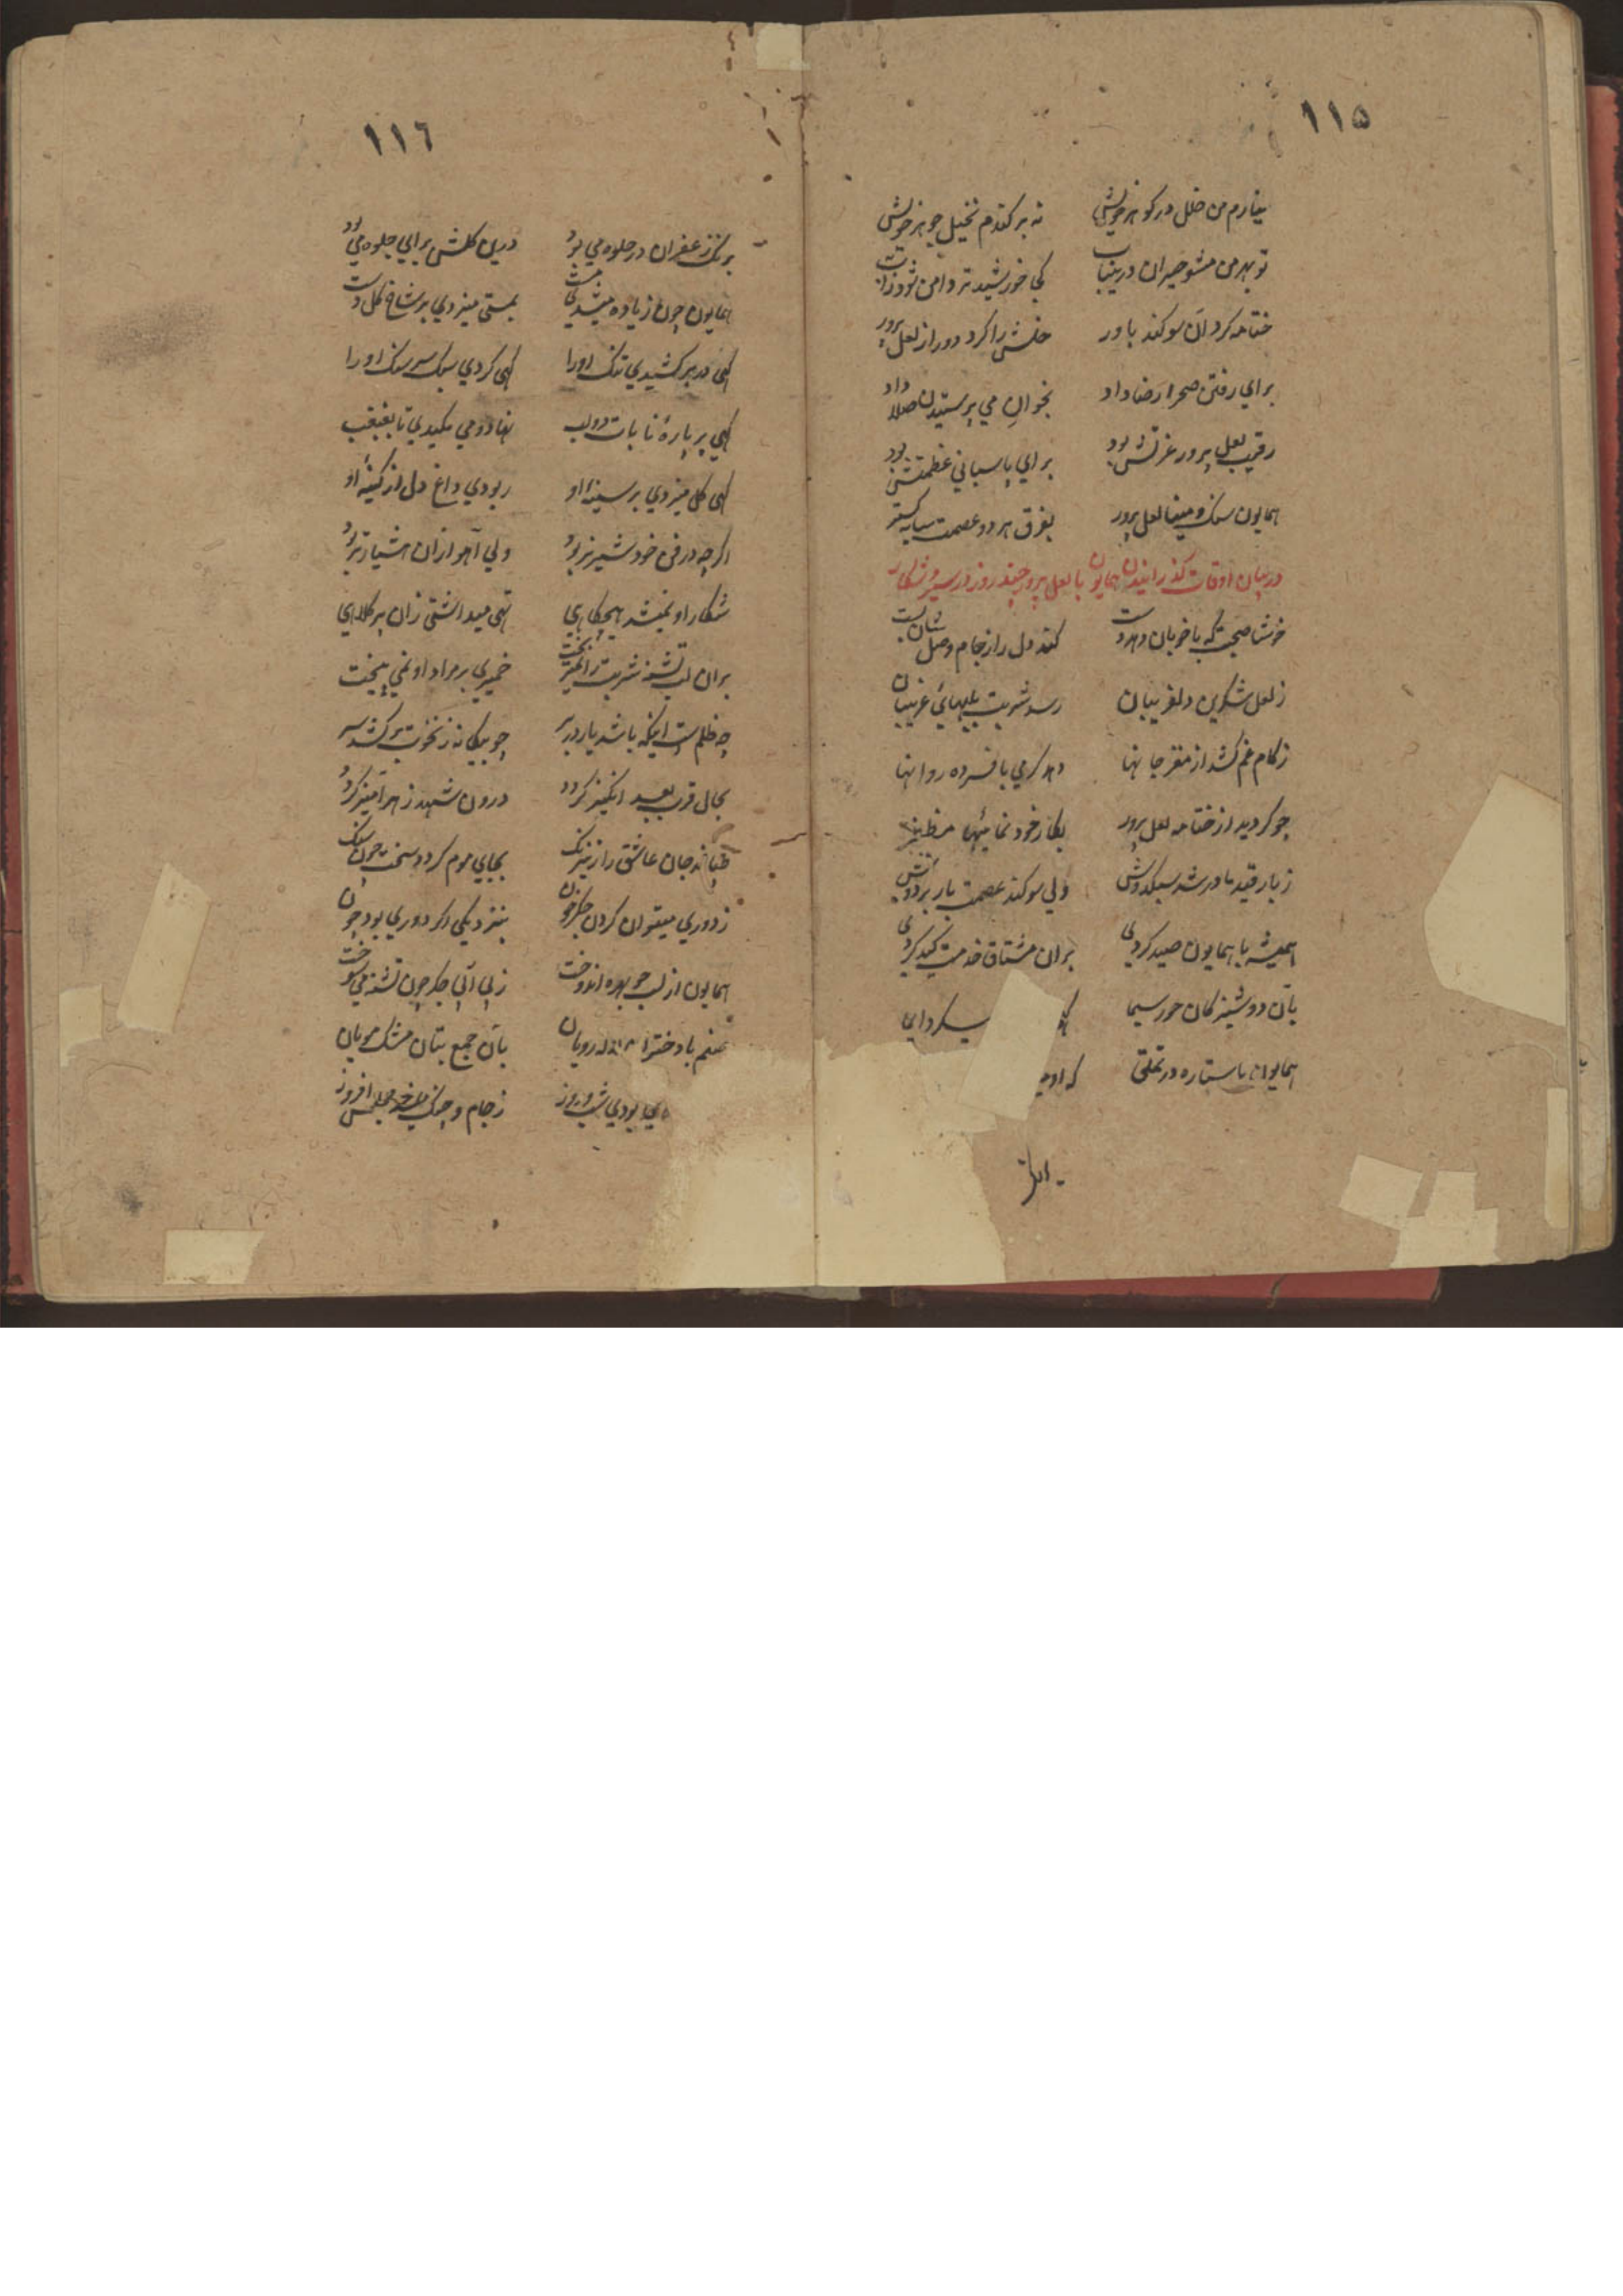 ١١۵
نیارم من خلل در کوهر خویش نه بر کندم نخیل جوهر خویش
تو بهر من مشو حیران درینباب کی خورشید تر دامن شود زاب
ختامه کرد آن سوکند باور خلش را کرد دور از لعل پرور
برای رفتن صحرا رضا داد بخوان می پرستیدن صلا داد
رقیب لعل پرور عزتش بود برای پاسبانی عظمتش بود
همایون سنک و مینا لعل پرور بفرق هر دو عصمت سایه کستر
در بیان اوقات کذرانیدن همایون با لعل پرور چند روز در سیر و شکار
خوشا صحبت که با خوبان دهد دست کند دل را ز جام وصل شان مست
ز لعل شکرین دلفریبان رسد شربت بلبهای غریبان
ز کام غم کشد از مغز جانها دهد کرمی بافسرده روانها
چو کردید از ختامه لعل پرور بکار خود نمائیها مظفر
ز بار قید مادر شد سبکدوش ولی سوکند عصمت بار بر دوش
همیشه با همایون صید کردی بران مشتاق خدمت کید کردی
بآن دوشیزکان حور سیما
همایون با ستاره در تملق که او
١١٦
برنک زعفران در جلوه می بود درین کلشن برای جلوه می بود
همایون چون ز باده میشدی مست بمستی میزدی بر شاخ کل دست
کهی در بر کشیدی تنک او را کهی کردی سبک سر سنک او را
کهی بر پارهٔ نابات دو لب نهادی می مکیدی تا بغبغب
کهی کل میزدی بر سینهٔ او ربودی داغ دل از کینهٔ او
اکرچه در فن خود شیر نر بود ولی آهو ازان هشیارتر بود
شکار او نمیشد هیچکاهی تهی میداشتی زان پر کلاهی
بران لب تشنه شربت را نمیریخت خمیری بر مراد او نمی بیخت
چه ظلمست اینکه باشد یار در بر چو بیکانه ز نخوت بر کشد سر
بجای قرب بعد انکیز کردد درون شهد زهر آمیز کردد
طپاند جان عاشق را ز نیرنک بجای موم کردد سخت چون سنک
ز دوری میتوان کردن جکر خون بنزدیکی اکر دوری بود چون
همایون از لب جو بهره اندوخت ز بی آبی جکر چون تشنه می سوخت
صنم با دختران لاله رویان بآن جمع بتان مشک مویان
بودی شب و روز ز جام و چنک مجلس افروز